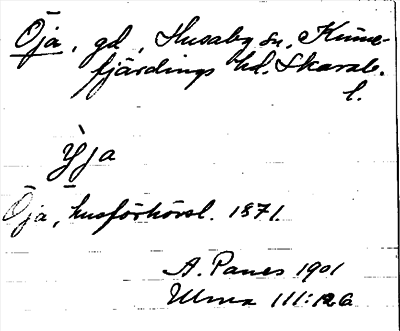 Öja, gd, Husaby sn, Kinne-
fjärdings hd. Skarab.
l.
y̆ja
Öja, husförhörsl. 1871.
A. Panes 1901
Ulma 111:126